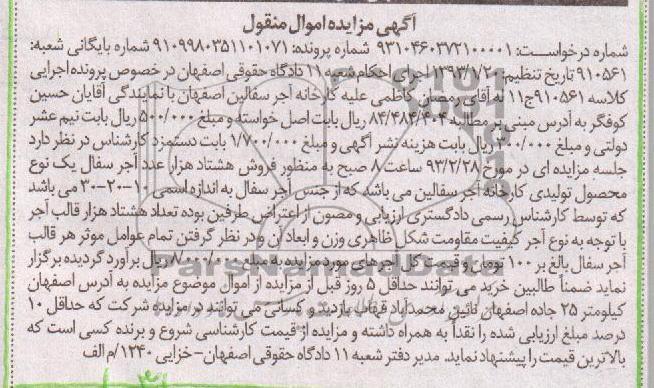 آگهی مزایده اموال منقول
شماره درخواست: ۹۳۱۰۴۶۰۳۷۲۱۰۰۰۰۱ شماره پرونده: ۹۱۰۹۹۸۰۳۵۱۱۰۱۰۷۱ شماره بایگانی شعبه:
۹۱۰۵۶۱ تاریخ تنظیم: ۱۳۹۳/۱/۲۰ اجرای احکام شعبه ۱۱ دادگاه حقوقی اصفهان در خصوص پرونده اجرایی
کلاسه ۹۱۰۵۶۱ج۱۱ له آقای رمضان کاظمی علیه کارخانه آجر سفالین اصفهان با نمایندگی آقایان حسین
کوفگر به آدرس مبنی بر مطالبه ۸۴/۴۸۴/۴۰۴ ریال بابت اصل خواسته و مبلغ ۵۰۰/۰۰۰ ریال بابت نیم عشر
دولتی و مبلغ ۳۰۰/۰۰۰ ریال بابت هزینه نشر آگهی و مبلغ ۱/۷۰۰/۰۰۰ بابت دستمزد کارشناس در نظر دارد
جلسه مزایده ای در مورخ ۹۳/۲/۲۸ ساعت ۸ صبح به منظور فروش هشتاد هزار عدد آجر سفال یک نوع
محصول تولیدی کارخانه آجر سفالین می باشد که از جنس آجر سفال به اندازه اسمی ۱۰-۲۰-۳۰ می باشد
که توسط کارشناس رسمی دادگستری ارزیابی و مصون از اعتراض طرفین بوده تعداد هشتاد هزار قالب آجر
با توجه به نوع آجر کیفیت مقاومت شکل ظاهری وزن و ابعاد آن و در نظر گرفتن تمام عوامل موثر هر قالب
آجر سفال بالغ بر ۱۰۰ تومان و قیمت کل آجرهای مورد مزایده به مبلغ ۸/۰۰۰/۰۰۰ ریال برآورد گردیده برگزار
نماید ضمناً طالبین خرید می توانند حداقل ۵ روز قبل از مزایده از اموال موضوع مزایده به آدرس اصفهان
کیلومتر ۲۵ جاده اصفهان نائین محمدآباد قهاب بازدید و کسانی می توانند در مزایده شرکت که حداقل ۱۰
درصد مبلغ ارزیابی شده را نقداً به همراه داشته و مزایده از قیمت کارشناسی شروع و برنده کسی است که
بالاترین قیمت را پیشنهاد نماید. مدیر دفتر شعبه ۱۱ دادگاه حقوقی اصفهان-خزایی ۱۳۴۰/م الف
ParsNamadData